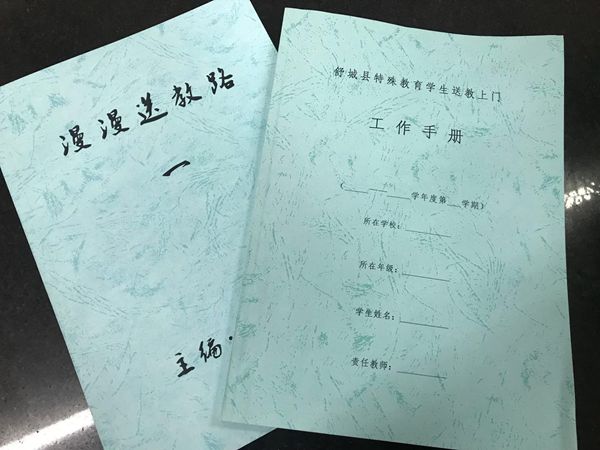 漫漫送教路
一
主编.
舒城县特殊教育学生送教上门
工作手册
(____—____学年度第__学期)
所在学校:______
所在年级:______
学生姓名:______
责任教师:______